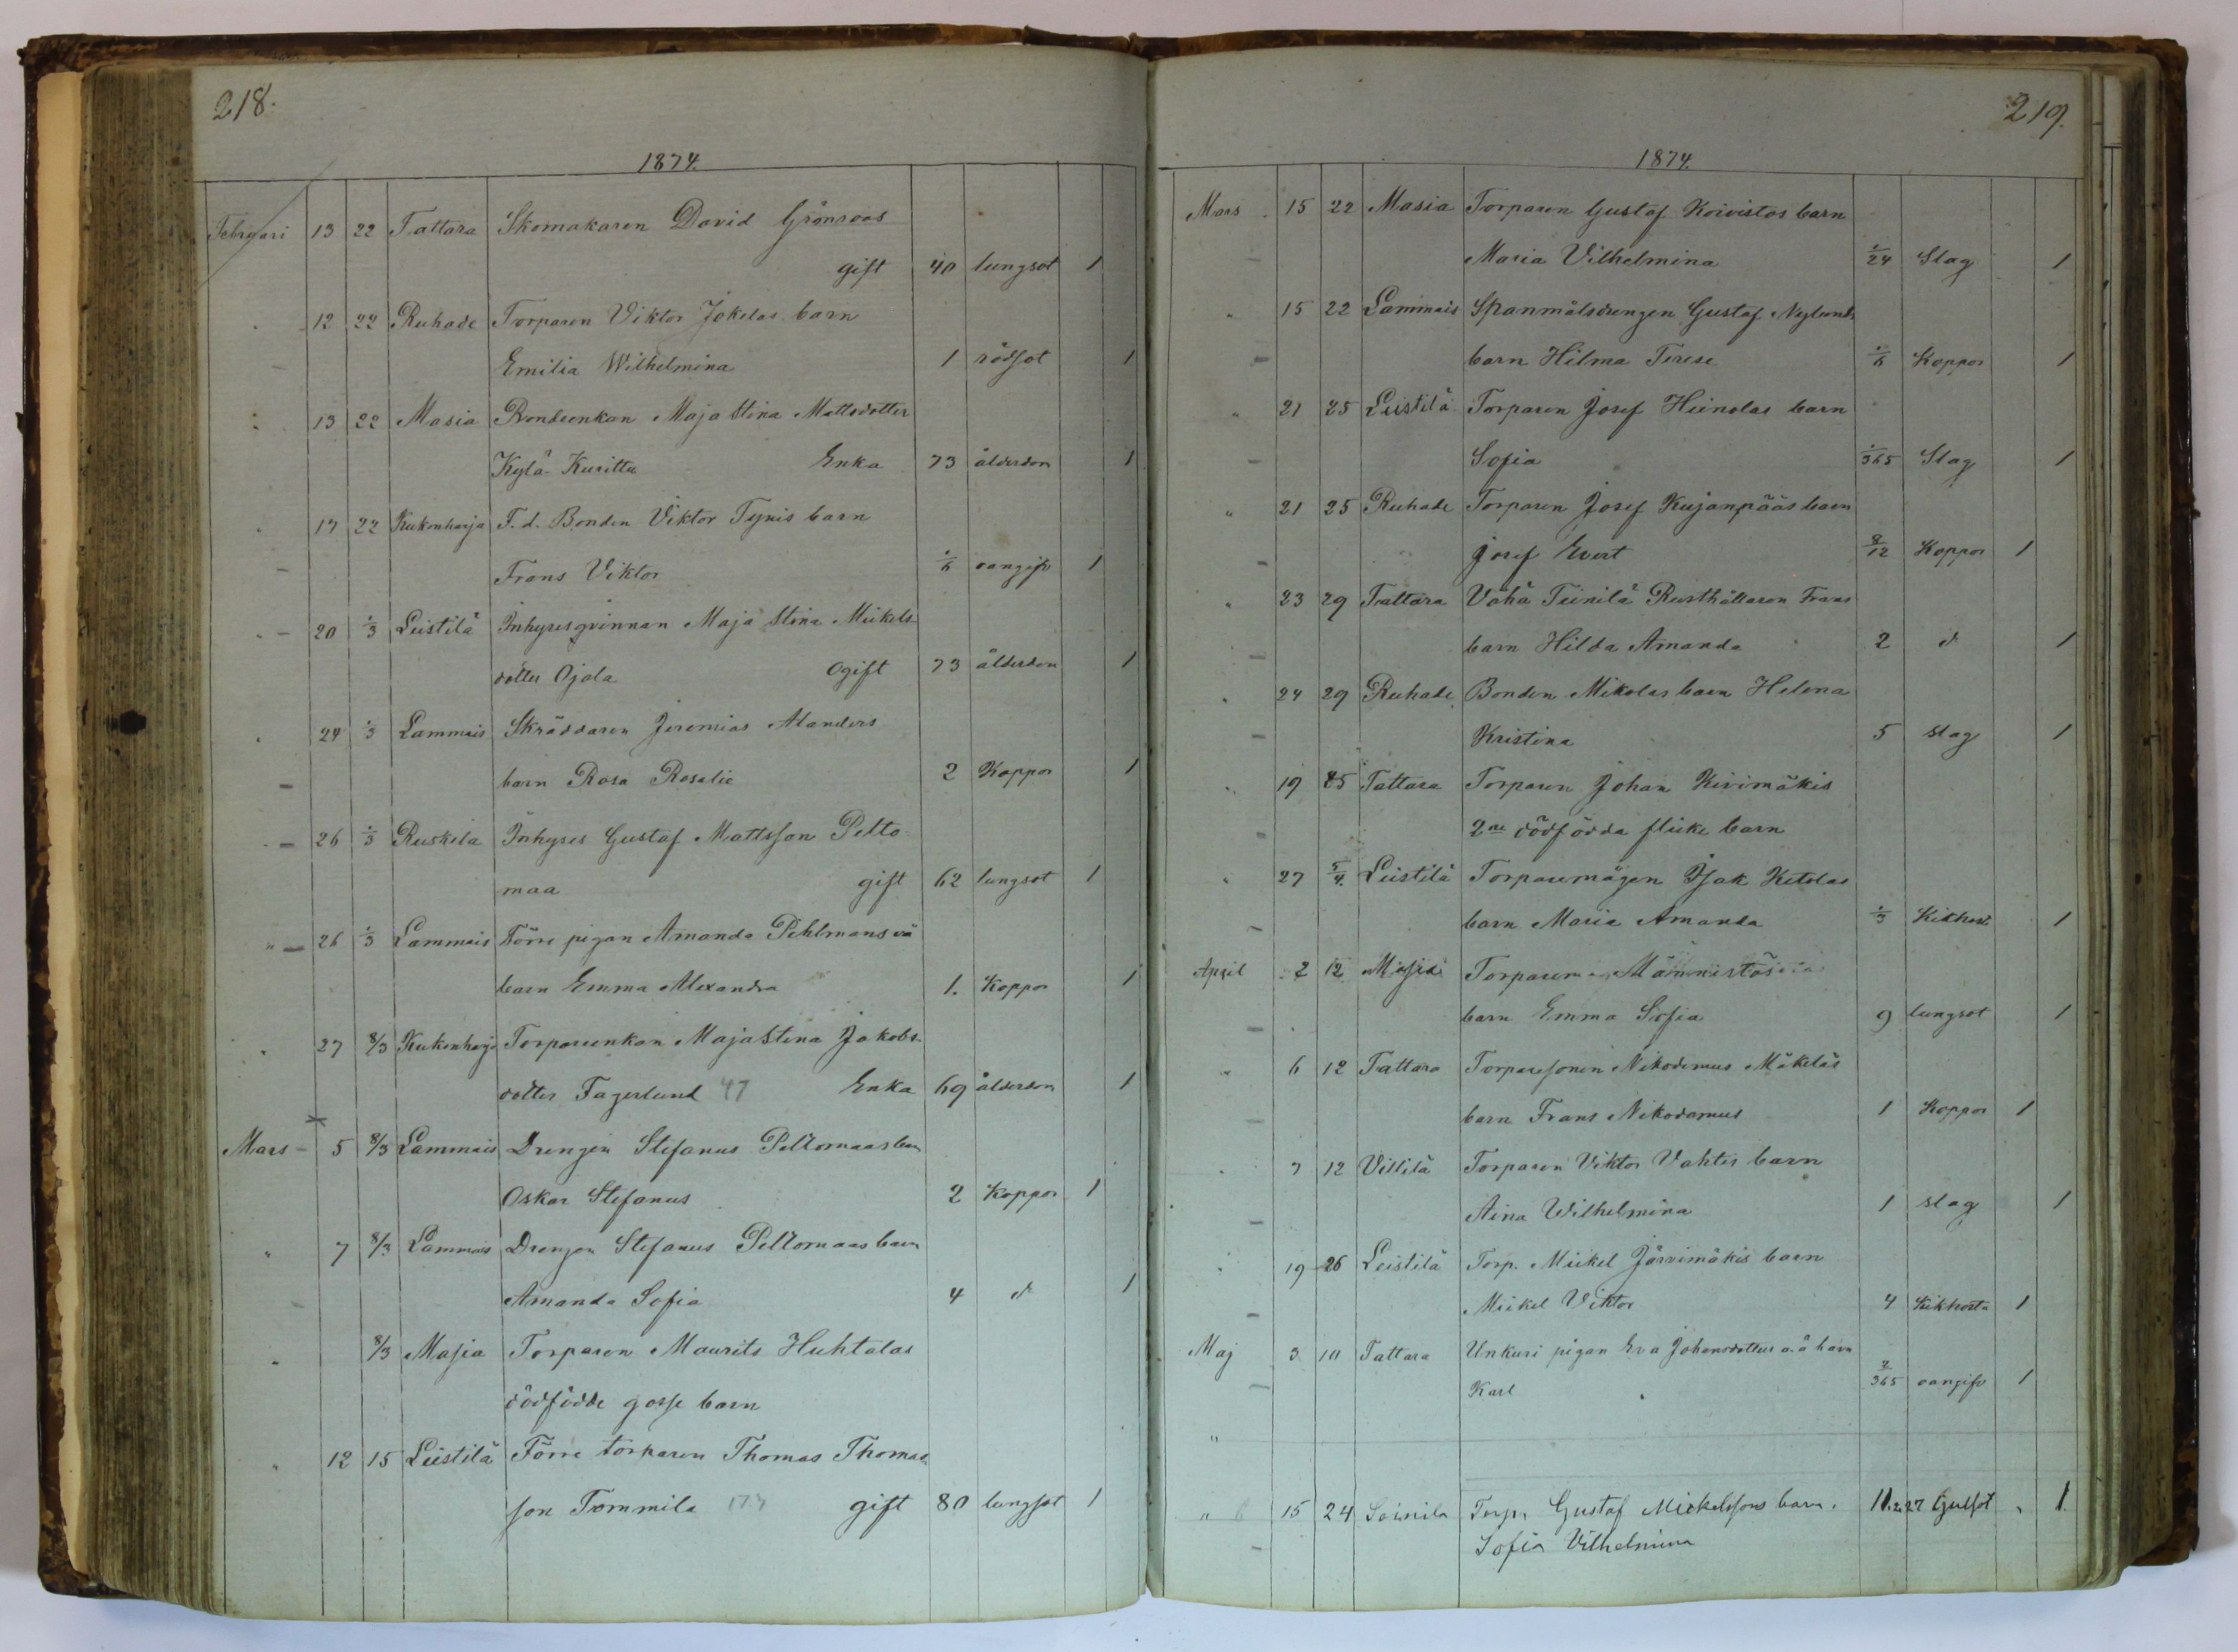 218.
1874.
Februari 13 22 Tattara Skomakaren David Grönroos
gift 40 lungsot 1
" 12 22 Ruhade Torparen Viktor Jokelas barn
Emilia Wilhelmina 1 rödsot 1
" 13 22 Masia Bondeenkan Maja Stina Mattsdotter
Kylä-Kurittu Enka 73 ålderdom 1
" 17 22 Kukonharja F.d. Bonden Viktor Tynis barn
Frans Viktor 1/6 oangifv 1
" 20 1/3 Leistilä Inhysesqvinnan Maja Stina Mickels
dotter Ojala Ogift 73 ålderdom 1
" 24 1/3 Lammais Skräddaren Jeremias Alanders
barn Rosa Rosalie 2 Koppor 1
" 26 1/3 Ruskila Inhyses Gustaf Mattsson Pelto
maa gift 62 lungsot 1
" 26 1/3 Lammais Förre pigan Amanda Pihlmans oä
barn Emma Alexandra 1. Koppor 1
" 27 8/3 Kukonharja Torpareenkan Maja Stina Jakobs
dotter Fagerlund 47 Enka 69 ålderdom 1
Mars 5 8/3 Lammais Drengen Stefanus Peltomaas barn
Oskar Stefanus 2 Koppor 1
" 7 8/3 Lammais Drengen Stefanus Peltomaas barn
Amanda Sofia 4 d 1
" 8/3 Masia Torparen Maurits Huhtalas
dödfödde gosse barn
" 12 15 Leistilä Förre torparen Thomas Thomas
son Tommila 173 gift 80 lungsot 1
219.
1874.
Mars 15 22 Masia Torparen Gustaf Koivistos barn
Maria Vilhelmina 1/24 Slag 1
" 15 22 Lammais Spanmålsdrengen Gustaf Nylunds
barn Hilma Terese 1/6 Koppor 1
" 21 25 Leistilä Torparen Josef Heinolas barn
Sofia 1/365 Slag 1
" 21 25 Ruhade Torparen Josef Kujanpääs barn
Josef Evert 8/12 Koppor 1
" 23 29 Tattara Vähä Teinilä Rusthållaren Frans
barn Hilda Amanda 2 d 1
" 24 29 Ruhade Bonden Mikolas barn Helena
Kristina 5 slag 1
" 19 25 Tattara Torparen Johan Kivimäkis
2ne dödfödda flicke barn
" 27 5/4 Leistilä Torparemågen Isak Ketolas
barn Maria Amanda 1/3 Kikhosta 1
April 2 12 Masia Männistös
barn Emma Sofia 9 lungsot 1
" 6 12 Tattara Torparesonen Nikodemus Mäkeläs
barn Frans Nikodemus 1 Koppor 1
" 7 12 Villilä Torparen Viktor Vahtis barn
Aina Wilhelmina 1 slag 1
" 19 26 Leistilä Torp. Mickel Järvimäkis barn
Mickel Viktor 4 Kikhosta 1
Maj 3 10 Tattara Unkuri pigan Eva Johansdotters o.ä barn
Karl 2/365 oangifv 1
"
" 15 24 Soinila Torp. Gustaf Mickelssons barn. 11.2.27 Gulsot " 1
Sofia Vilhelmina